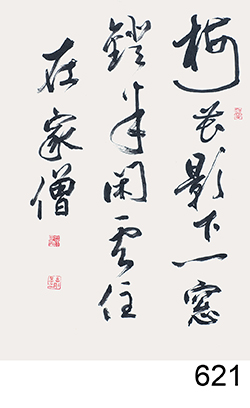 梅花影下一窓
鐙半閑雲住
在家僧
621